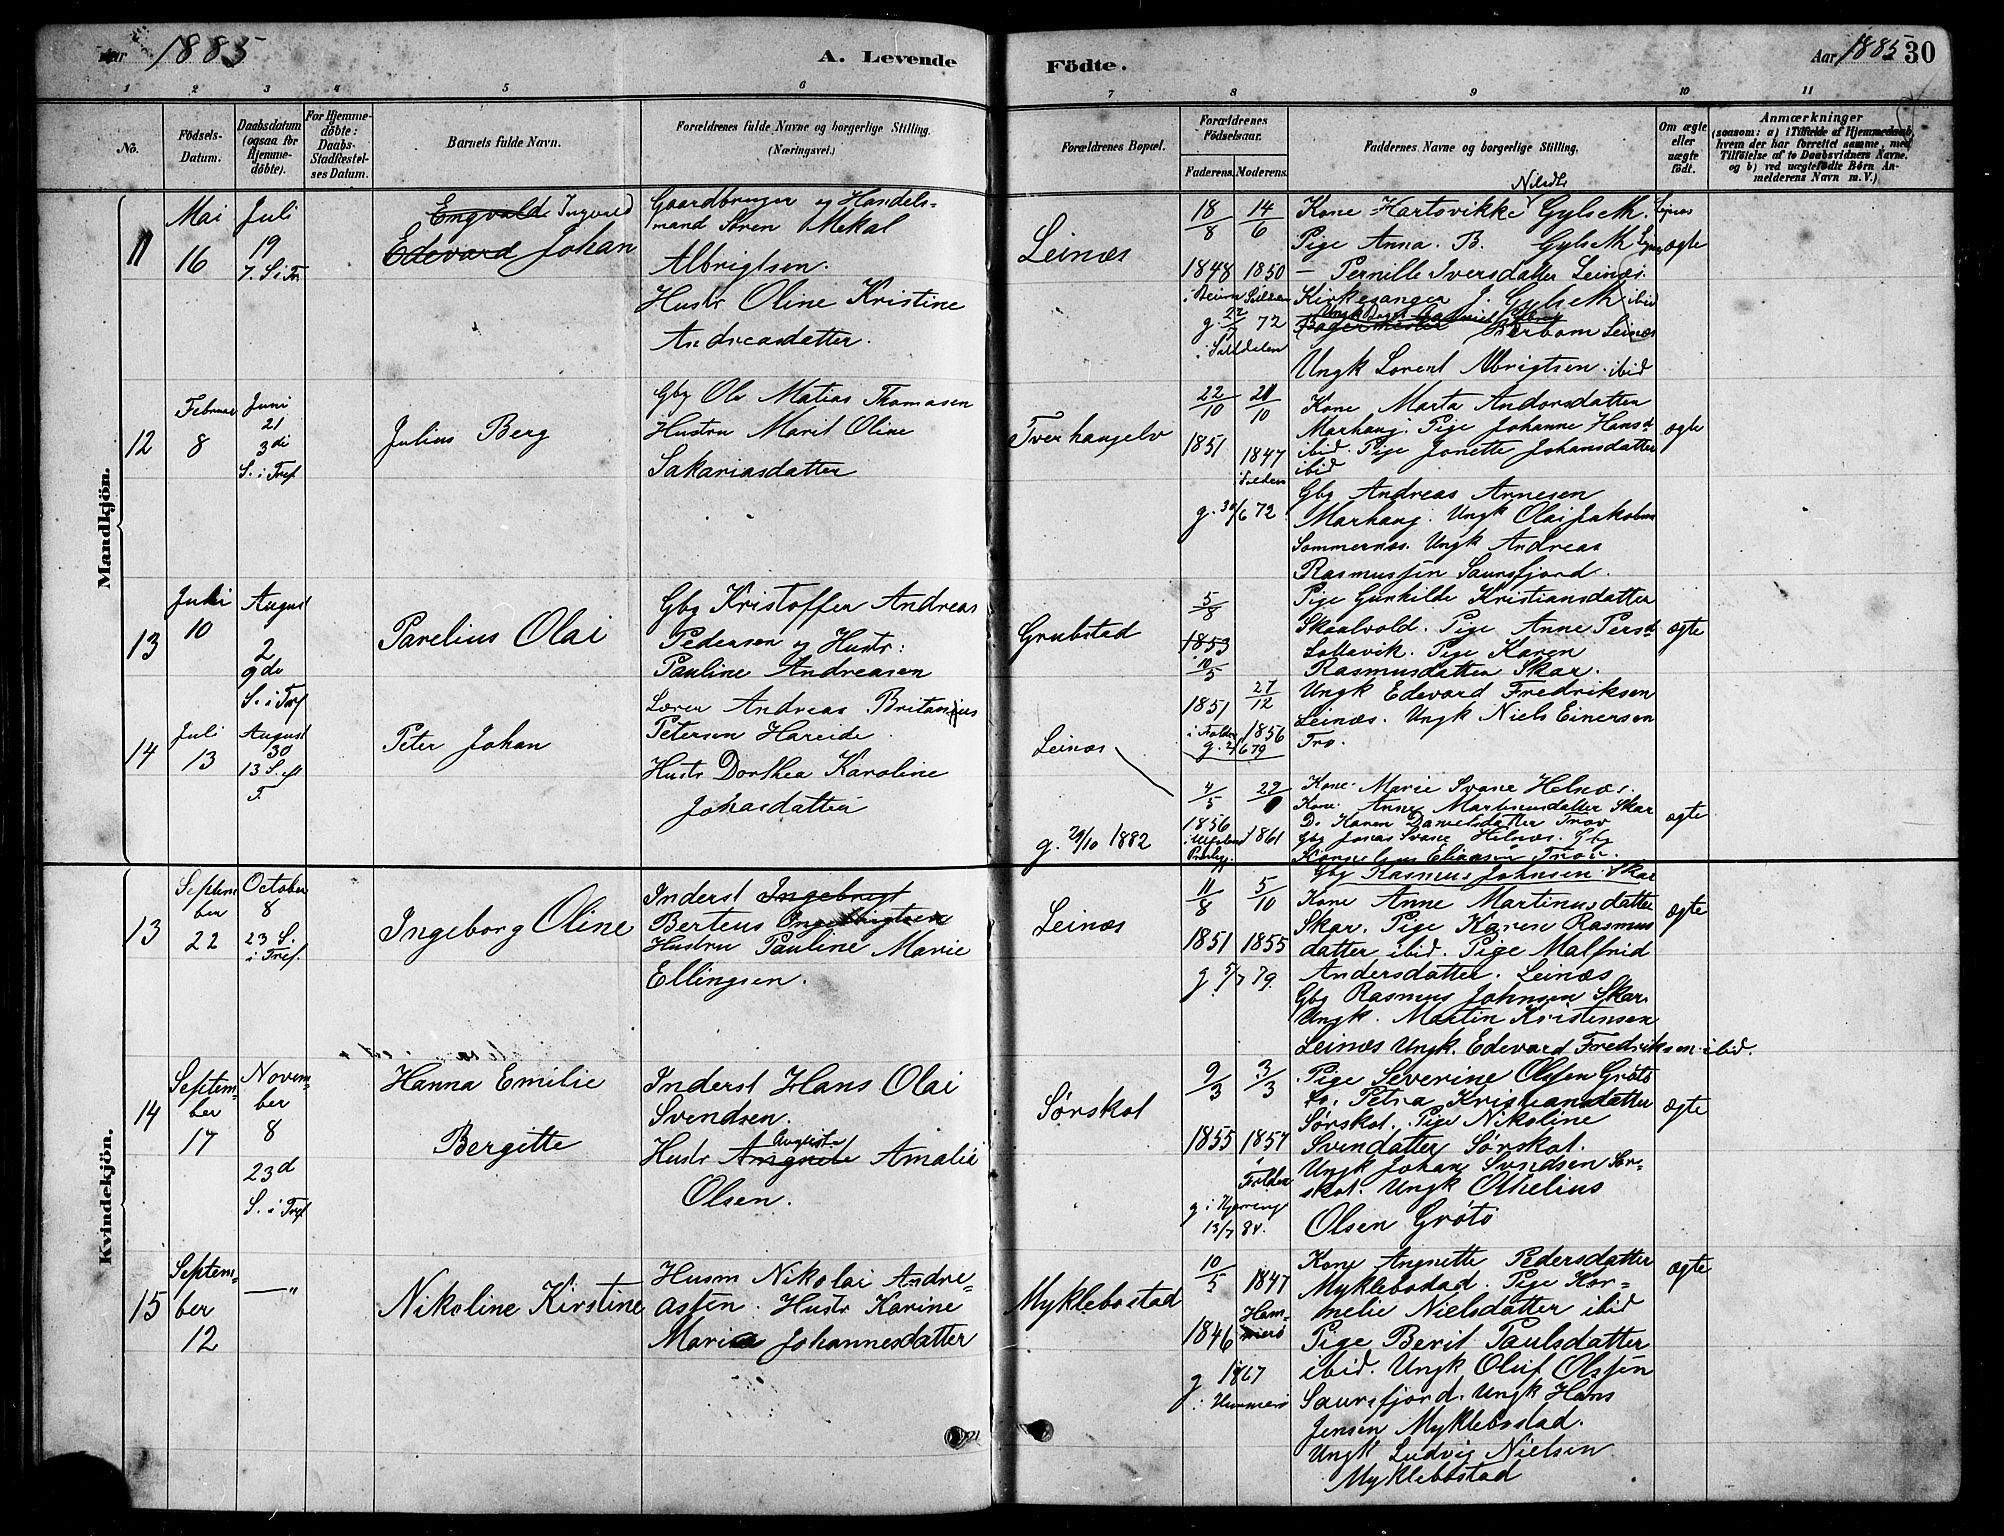 Aar 1885
A. Levende
Födte.
Aar 1885 30
1 2 3 4 5 6 7 8 9 10 11
No.
Födsels-
Datum.
Daabsdatum
(ogsaa for
Hjemme-
döbte).
For Hjemme-
döbte:
Daabs-
Stadfæstel-
ses Datum.
Barnets fulde Navn.
Forældrenes fulde Navne og borgerlige Stilling.
(Næringsvei.)
Forældrenes Bopæl.
Forældrenes
Födselsaar.
Faderens. Moderens.
Faddernes Navne og borgerlige Stilling.
Om ægte
eller
uægte
födt.
Anmærkninger
(saasom: a) i Tilfælde af Hjemmedaab,
hvem der har forrettet samme, med
Tilföielse af to Daabsvidners Navne,
og b) ved uægtefödte Börn An-
melderens Navn m. V.)
Mandkjön.
11
Mai
16
Juli
19
7. S. i Tr.
Engvald Ingvald
Edevard Johan
Gaardbruger og Handels-
mand Søren Mekal
Albrigtsen.
Hustr Oline Kristine
Andreasdatter.
Leinæs
18/8 14/6
1848 1850
g. 22/7 72
i Saltdalen
Kone Hartsvikke Gylseth. Leinæs
Pige Anna. B. Gylseth
— Pernille Iversdatter Leinæs.
Kirkesanger J. Gylseth ibid
Leinæs
Ungk Lorent Albrigtsen ibid
ægte
12
Februar
8
Juni
21
3di
S. i Tref
Julius Berg
Gbg Ole Matias Thomasen
Hustru Marit Oline
Sakariasdatter
Tverhangelv
22/10 21/10
1851 1847
g. 30/6 72
Kone Marta Andorsdatter
Marhaug. Pige Johanne Hansd
ibid. Pige Jonette Johansdatter
ibid
Gbg Andreas Arnesen
Marhaug. Ungk Olai Jakobsen
Sommernes. Ungk Andreas
Rasmussen Saursfjord.
ægte
13
Juli
10
August
2
9de
S. i Tref
Parelius Olai
Gbg Kristoffer Andreas
Pedersen og Hustr:
Pauline Andreasen
Grubstad
5/8
1853
10/5 27/12
1851 1856
i Folden
g. 2/6 79
Pige Gunhilde Kristiansdatter
Skaalvold. Pige Anne Persd
Sollavik. Pige Karen
Rasmusdatter Skar.
Ungk Edevard Fredriksen
Leinæs. Ungk Niels Einersen
Tro.
ægte
14
Juli
13
August
30
13 S. ef
T.
Peter Johan
Lærer Andreas Britanius
Petersen Hareide.
Hustr Dorthea Karoline
Johasdatter
Leinæs
g. 29/10 1882
4/5 22
1856 1861
Kone Marie Svane Helnæs.
Kone Anne Martinusdatter Skar
Do Karen Danielsdatter Trov
Gbg Jonas Svane Helnæs. Gbg
Kornelius Eliasen Trov.
Gbg Rasmus Johnsen Skar
ægte
Kvindekjön.
13
Septem
ber
22
October
8
23 S.
i Tref.
Ingeborg Oline
Inderst Ingebrigt
Berteus Ingebrigtsen
Hustru Pauline Marie
Ellingsen.
Leinæs
11/8 5/10
1851 1855
g 5/7 79
Kone Anne Martinusdatter
Skar. Pige Karen Rasmus
datter ibid. Pige Malfrid
Andersdatter. Leinæs
Gbg Rasmus Johnsen Skar.
Ungk. Martin Kristensen
Leinæs Ungk. Edevard Fredriksen ibid.
ægte
14
Septem-
ber
17
Novem-
ber
8
23d
S. i Tref
Hanna Emilie
Bergitte
Inderst Hans Olai
Svendsen.
Hustr Augusta Amalia
Olsen.
Sørskot
9/3 3/3
1855 1857
i Folden
g i Kjerringø
13/7 84.
Pige Severine Olssen Grøtø
Do. Petra Kristiansdatter
Sørskot. Pige Nikoline
Svendatter Sørskot.
Ungk Johan Svendsen Sør-
skot. Ungk Othelius
Olsen Grøtø
ægte
15
Septem-
ber
12
—"
Nikoline Kirstine
Husm Nikolai Andre-
assen. Hustr Karine
Maria Johannesdatter
Myklebostad
10/5 1847
Ham-
merø
1846
g 1867
i Hammerø
Kone Angnette Pedersdatter
Myklebostad. Pige Kor-
nelie Nielsdatter ibid
Pige Berit Paulsdatter
ibid. Ungk Oluf Olssen
Saursfjord. Ungk Hans
Jensen Myklebostad.
Ungk Ludvig Nielsen
Myklebostad
ægte